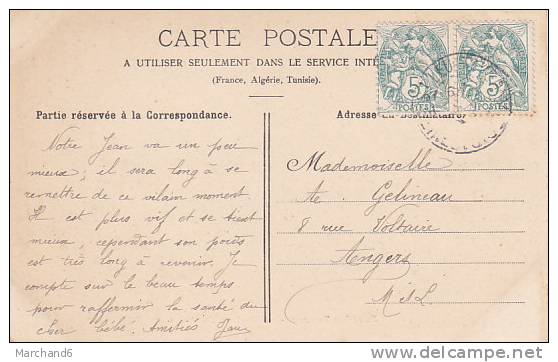 CARTE POSTALE
A UTILISER SEULEMENT DANS LE SERVICE INTÉ
(France, Algérie, Tunisie).
Partie réservée à la Correspondance.
Notre Jean va un peu
mieux; il sera long à se
remettre de ce vilain moment
Il est plus vif et se tient
mieux, cependant son poids
est très long à revenir. Je
compte sur le beau temps
pour raffermir la santé du
cher bébé. Amitiés
5c
POSTES
5c
POSTES
Adresse du Destinataire.
Mademoiselle
Gelineau
8 rue Voltaire
Angers
M&L
Marchand6
http://www.delcampe.net